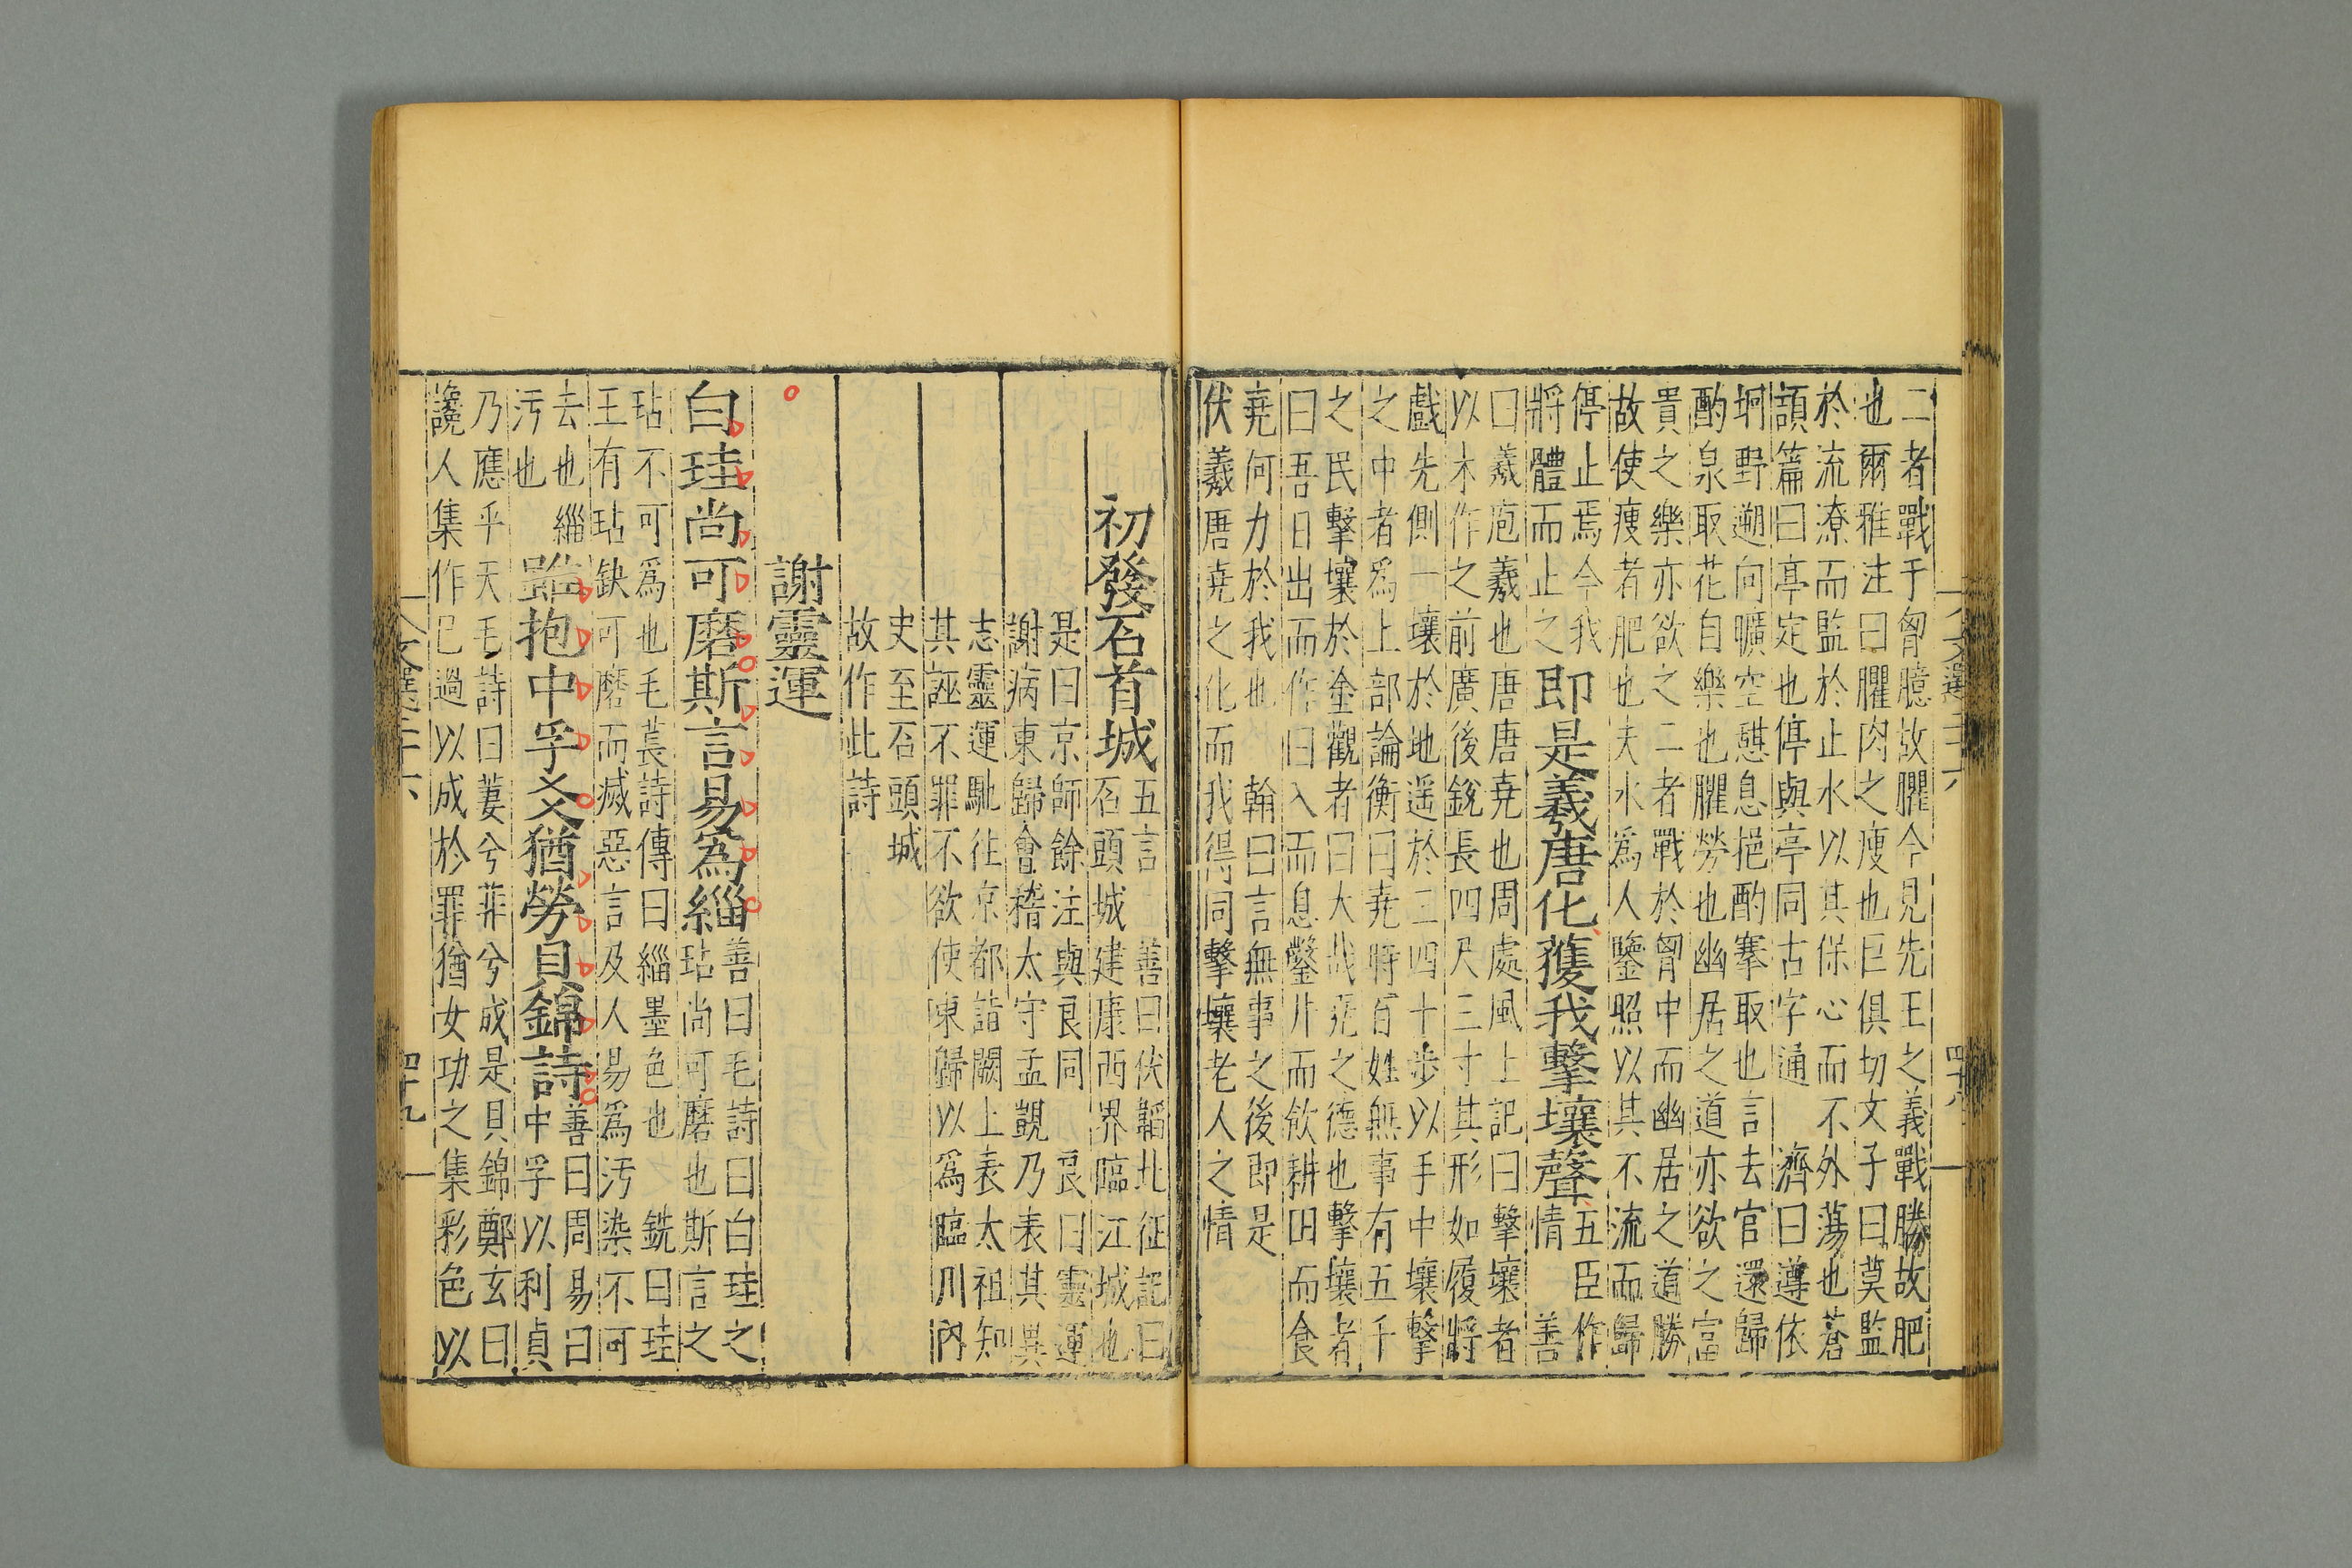 二者戰于胷臆故臞今見先王之義戰勝故肥
也爾雅注曰臞肉之瘦也巨俱切文子曰莫監
於流潦而監於止水以其保心而不外蕩也蒼
頡篇曰亭定也停與亭同古字通 濟曰遵依
坰野遡向曠空憇息挹酌搴取也言去官還歸
酌泉取花自樂也臞勞也幽居之道亦欲之富
貴之樂亦欲之二者戰於胷中而幽居之道勝
故使瘦者肥也夫水為人鑒照以其不流而歸
停止焉今我
將體而止之
即是羲唐化獲我擊壤聲
五臣作
情 善
曰羲庖羲也唐唐堯也周處風土記曰擊壤者
以木作之前廣後銳長四尺三寸其形如履將
戲先側一壤於地遥於三四十步以手中壤擊
之中者為上部論衡曰堯時百姓無事有五千
之民擊壤於塗觀者曰大哉堯之德也擊壤者
曰吾日出而作日入而息鑿井而飲耕田而食
堯何力於我也 翰曰言無事之後即是
伏羲唐堯之化而我得同擊壤老人之情
文選二十六
四十八
初發石首城
五言 善曰伏韜北征記曰
石頭城建康西界臨江城也
是曰京師餘注與良同 良曰靈運
謝病東歸會稽太守孟顗乃表其異
志靈運馳往京都詣闕上表太祖知
其誣不罪不欲使東歸以為臨川內
史至石頭城
故作此詩
謝靈運
白珪尚可磨斯言易為緇
善曰毛詩曰白珪之
玷尚可磨也斯言之
玷不可為也毛萇詩傳曰緇墨色也 銑曰珪
玉有玷缺可磨而滅惡言及人易為汚染不可
去也緇
汚也
雖抱中孚爻猶勞貝錦詩
善曰周易曰
中孚以利貞
乃應乎天毛詩曰萋兮菲兮成是貝錦鄭玄曰
讒人集作巳過以成於罪猶女功之集彩色以
文選二十六
四十九